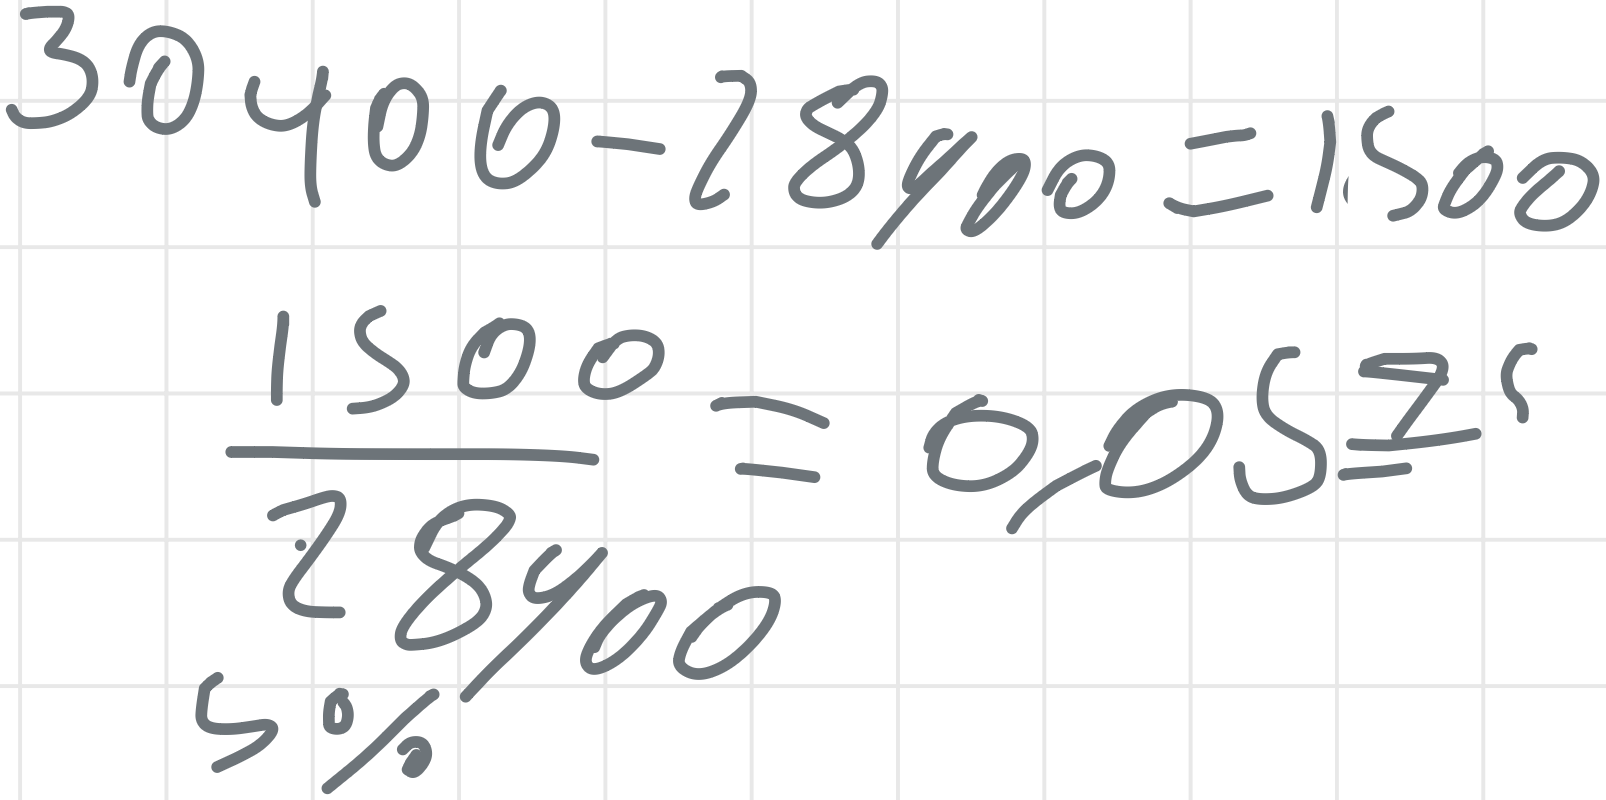 30400-28400=1500
1500
28400
= 0,05
5%